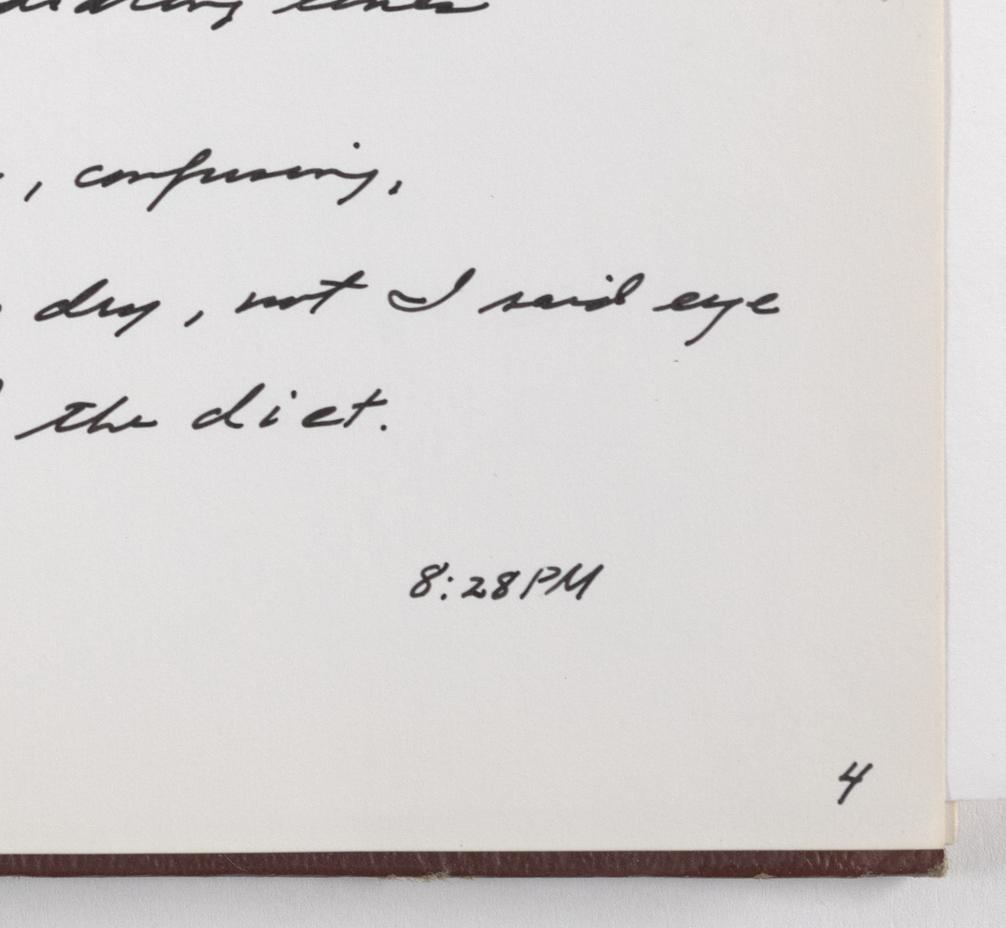 lines
, confusing,
dry, not I said eye
the diet.
8:28PM
4